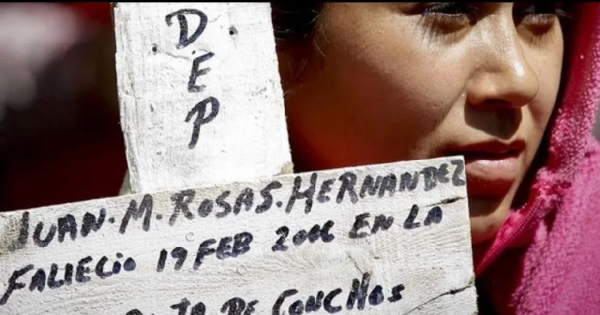 D
E
P
JUAN.M.ROSAS.HERNANDEZ
FALIECIO 19 FEB 2006 EN LA
DE CONCHOS